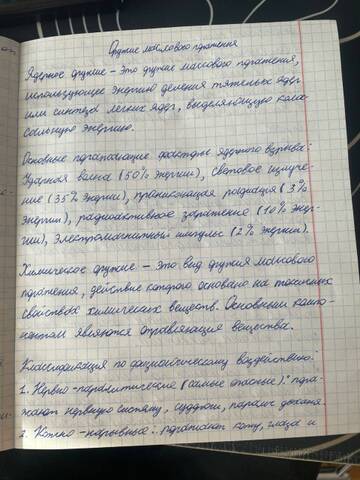 Оружие массового поражения
Ядерное оружие – это оружие массового поражения,
использующее энергию деления тяжелых ядер
или синтеза легких ядер, выделяющую коло-
сальную энергию.
Основные поражающие факторы ядерного взрыва:
Ударная волна (50% энергии), световое излуче-
ние (35% энергии), проникающая радиация (3%
энергии), радиоактивное заражение (10% энер-
гии), электромагнитный импульс (2% энергии).
Химическое оружие – это вид оружия массового
поражения, действие которого основано на токсичных
свойствах химических веществ. Основными компо-
нентом являются отравляющие вещества.
Классификация по физиологическому воздействию:
1. Нервно-паралитические (самые опасные): пора-
жают нервную систему, судороги, паралич дыхания
2. Кожно-нарывные: поражают кожу, глаза и